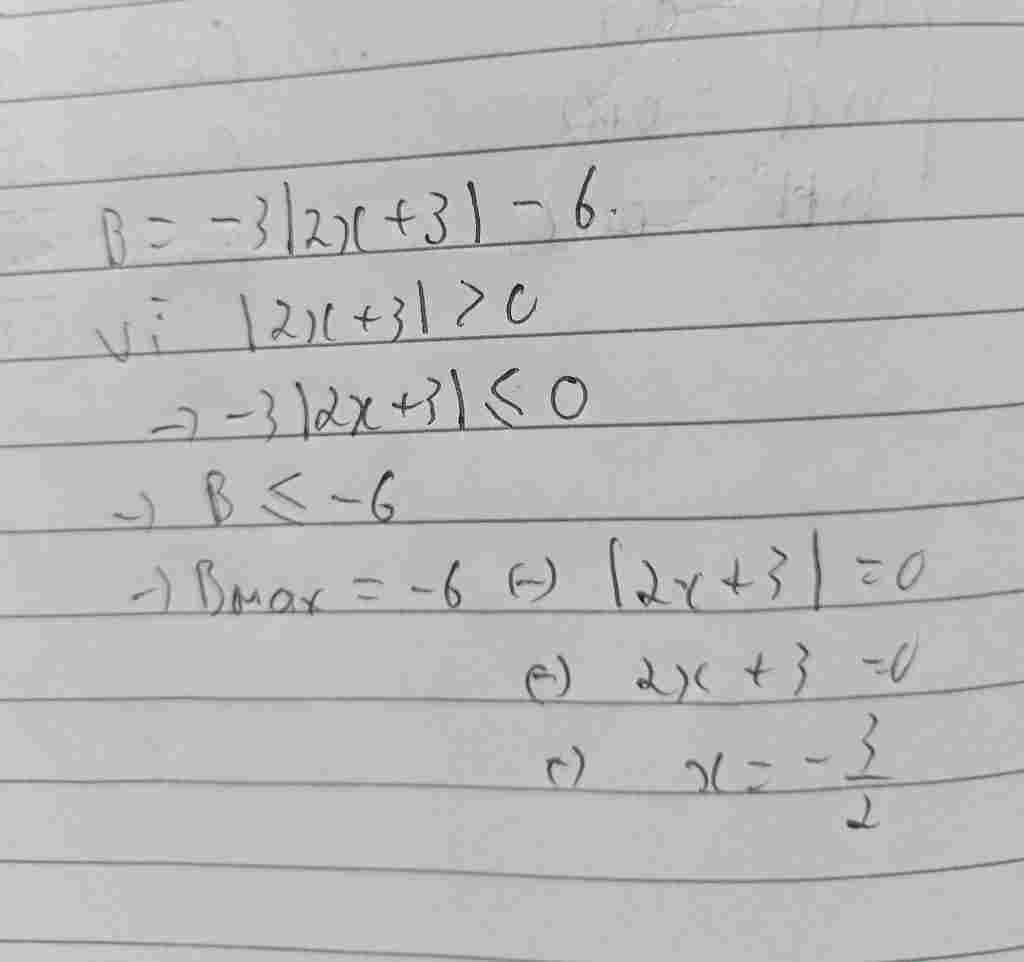 B = -3|2x+3| - 6.
Vì |2x+3| > 0
→ -3|2x+3| ≤ 0
→ B ≤ -6
→ Bmax = -6 (-) |2x+3| = 0
(-) 2x + 3 = 0
(-) x = - 3/2